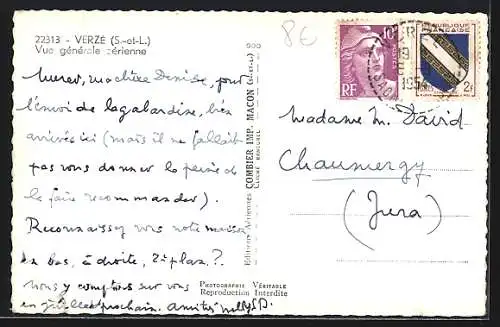 22313 - VERZÉ (S.-et-L.)
Vue générale aérienne
Merci, ma chère Denise, pour
l'envoi de la gabardine, bien
arrivée ici (mais il ne fallait
pas vous donner la peine de
la faire recommander).
Reconnaissez vous notre maison
en bas, à droite, 2e plan ?.
nous y comptons sur vous
en juillet prochain. amitiés
Editions Aériennes COMBIER IMP. MACON (S.-et-L.)
PHOTOGRAPHIE VÉRITABLE
Reproduction Interdite
8€
10F
RF
RÉPUBLIQUE
FRANÇAISE
2F
1954
Madame M. David
Chaumergy
(Jura)